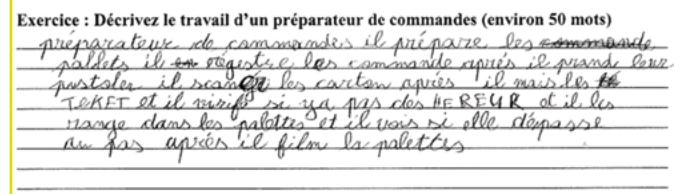 Exercice : Décrivez le travail d'un préparateur de commandes (environ 50 mots)
préparateur de commandes il prépare les commande
pallets il en régestre les commande après il prand leur
pustoler il scaner les carton après il mais les
TeKET et il vérifi si ya pas des HEREUR et il les
range dans les palettes et il vois si elle dépasse
au pas après il film la palettes